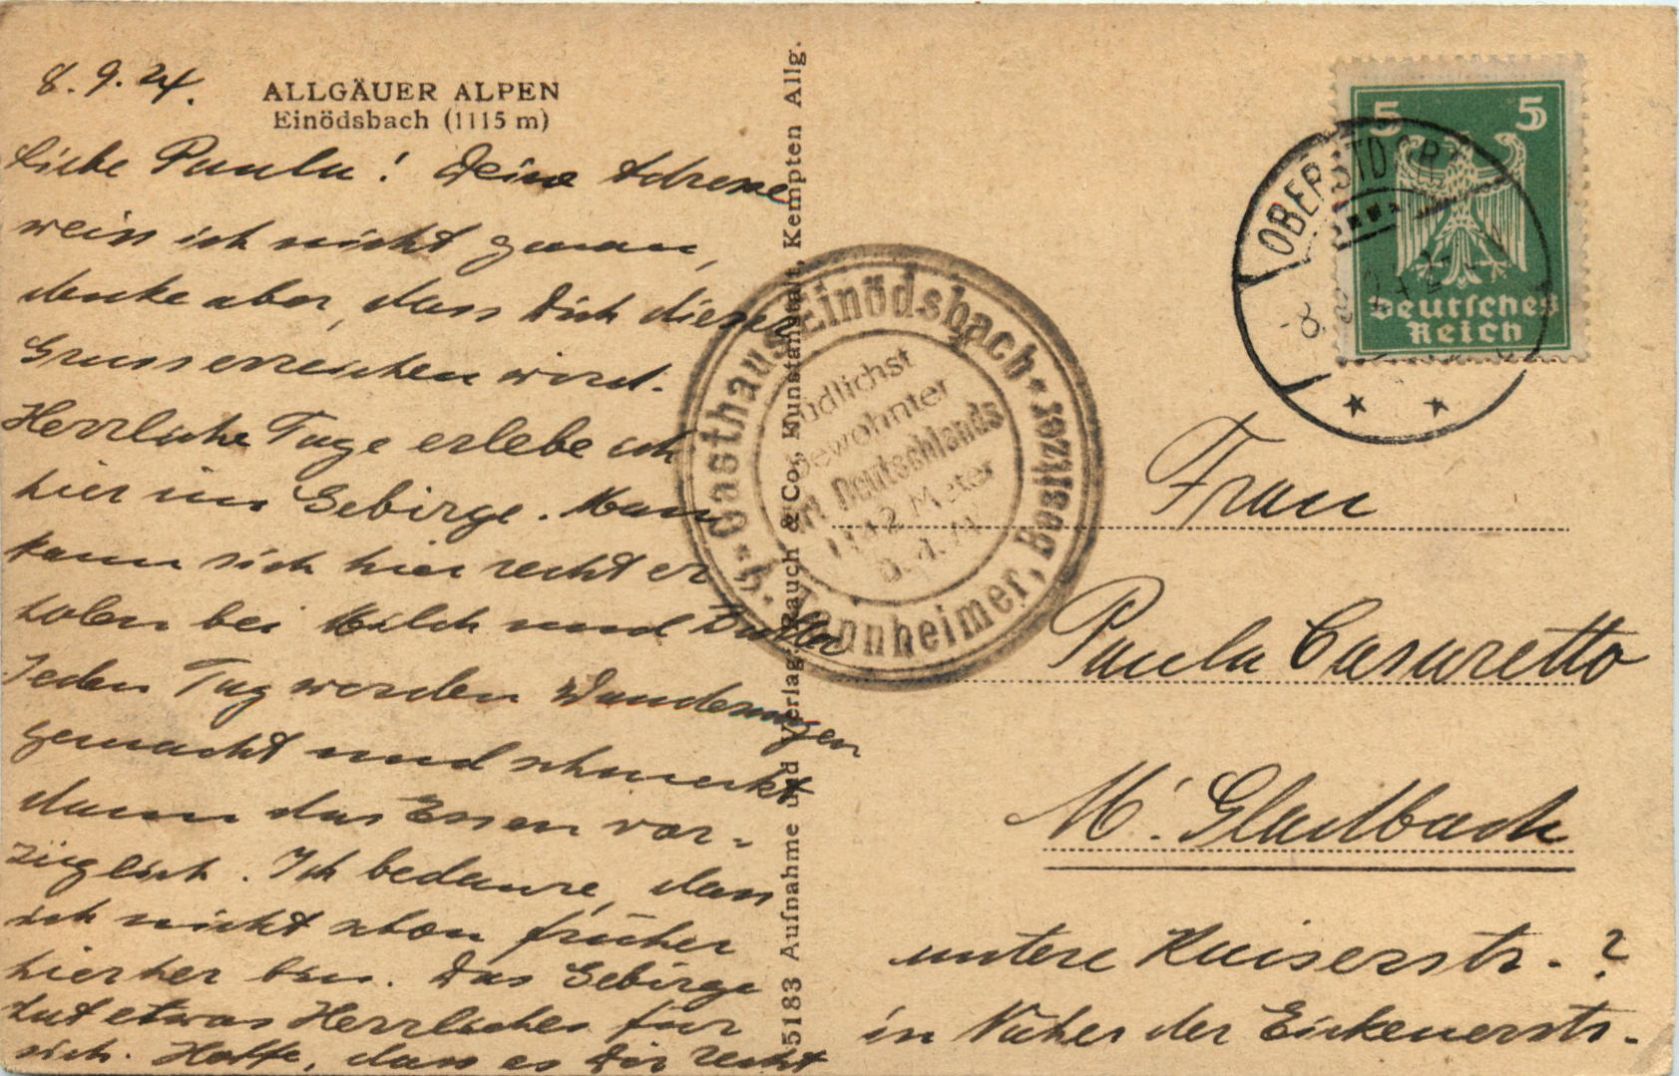 8.9.24.
ALLGÄUER ALPEN
Einödsbach (1115 m)
Liebe Paula! Deine Adresse
weiss ich nicht genau,
denke aber, dass Dich dieser
Gruss erreichen wird.
Herrliche Tage erlebe ich
hier im Gebirge. Man
kann sich hier recht er
holen bei Milch und Butter
Jeden Tag werden Wanderungen
gemacht und schmeckt
dann das Essen vor-
züglich. Ich bedaure, dass
ich nicht schon früher
hierher bin. Das Gebirge
hat etwas Herrliches für
sich. Hoffe, dass es Dir recht
55183 Aufnahme und Verlag: Rauch & Co., Kunstanstalt, Kempten Allg.
Gasthaus Einödsbach
Tannheimer, Besitzer
südlichst
bewohnter
Ort Deutschlands
1142 Meter
ü. d. M.
5 5
Deutsches
Reich
OBERSTDORF
Frau
Paula Casaretto
M. Gladbach
untere Kaiserstr. ?
in Näher der Eickenerstr.